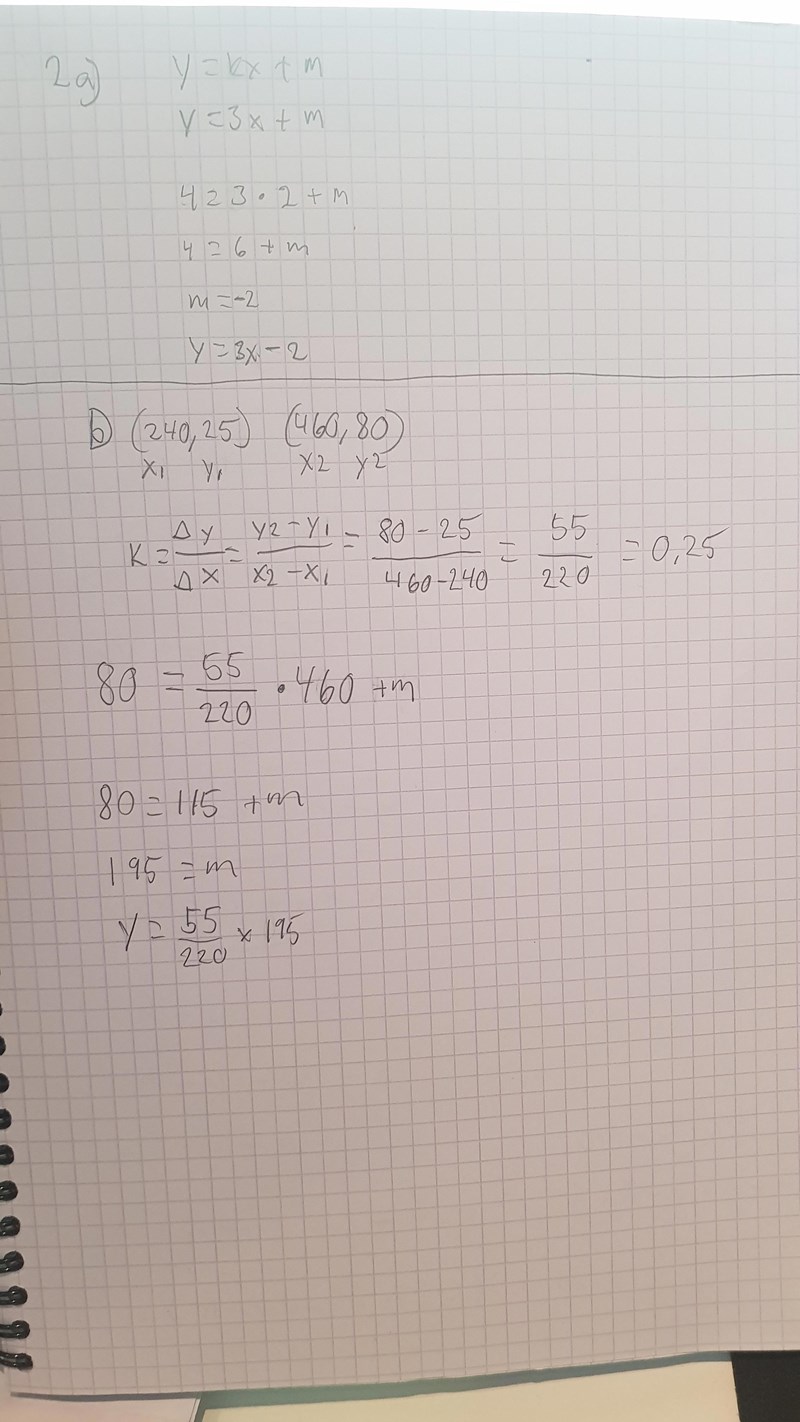 2a) y = kx + m
y = 3x + m
4 = 3 · 2 + m
4 = 6 + m
m = -2
y = 3x - 2
b) (240, 25) (460, 80)
x₁ y₁ x2 y2
K = Δy/Δx = (y2 - y₁)/(x2 - x₁) = (80 - 25)/(460 - 240) = 55/220 = 0,25
80 = 55/220 · 460 + m
80 = 115 + m
195 = m
y = 55/220 x 195